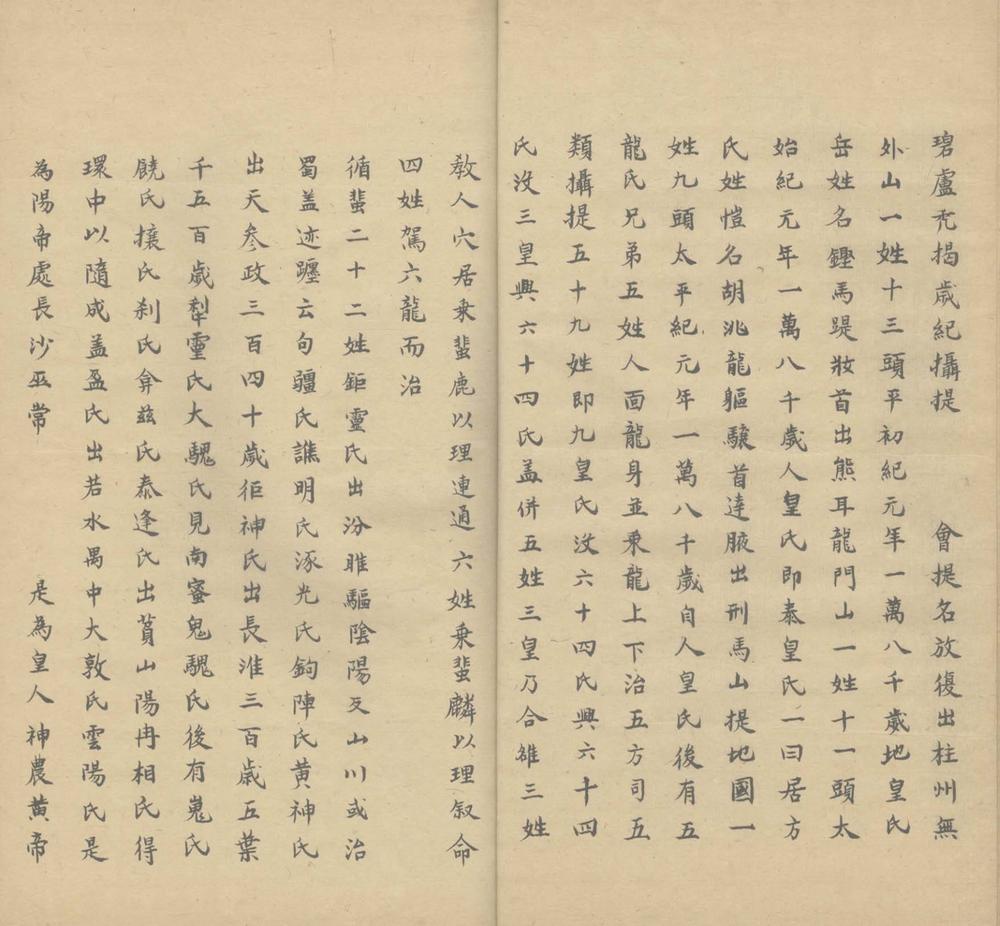 碧盧禿揭歲紀攝提　會提名放復出柱州無
外山一姓十三頭平初紀元年一萬八千歲地皇氏
岳姓名鏗馬踶妝首出熊耳龍門山一姓十一頭太
始紀元年一萬八千歲人皇氏即泰皇氏一曰居方
氏姓愷名胡洮龍軀驤首達腋出刑馬山提地國一
姓九頭太平紀元年一萬八千歲自人皇氏後有五
龍氏兄弟五姓人面龍身並乗龍上下治五方司五
類攝提五十九姓即九皇氏沒六十四氏興六十四
氏沒三皇興六十四氏盖併五姓三皇乃合雒三姓
教人穴居乗蜚鹿以理連通六姓乗蜚麟以理叙命
四姓駕六龍而治
循蜚二十二姓鉅靈氏出汾睢驅陰陽反山川或治
蜀盖迹躔云句疆氏譙明氏涿光氏鉤陣氏黄神氏
出天参政三百四十歲㹑神氏出長淮三百歲五葉
千五百歲犁靈氏大騩氏見南蜜鬼騩氏後有嵬氏
饒氏攘氏刹氏弇兹氏泰逢氏出萯山陽冉相氏得
環中以隨成盖盈氏出若水禺中大敦氏雲陽氏是
為陽帝處長沙巫常　是為皇人神農黄帝